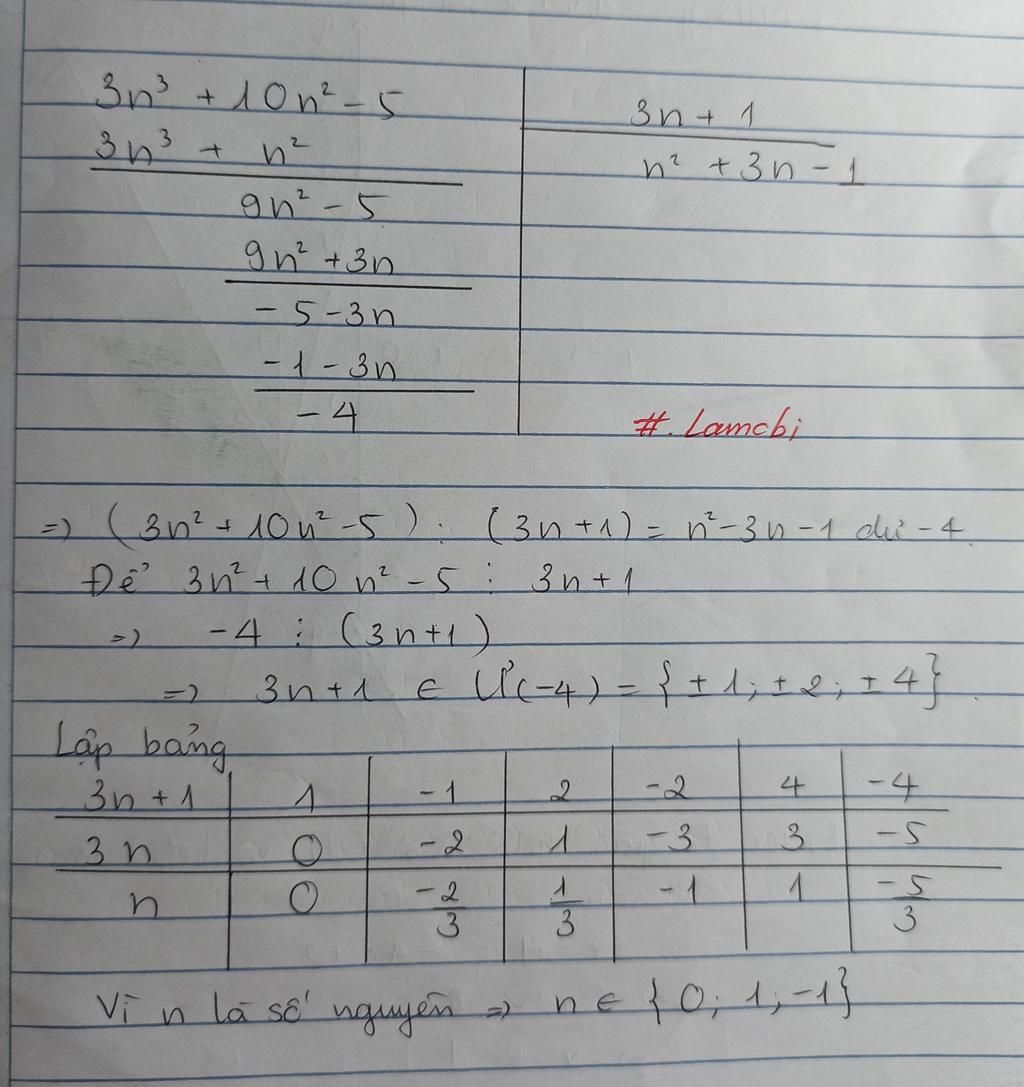 3n³ + 10n² - 5 3n + 1
3n³ + n² n² + 3n - 1
9n² - 5
9n² + 3n
- 5 - 3n
- 1 - 3n
- 4
#. Lamcbi
=> (3n² + 10n² - 5) : (3n + 1) = n² - 3n - 1 dư - 4.
Để 3n² + 10n² - 5 ⋮ 3n + 1
=> - 4 ⋮ (3n + 1)
=> 3n + 1 ∈ Ư(-4) = {± 1; ± 2; ± 4}.
Lập bảng
3n + 1 1 -1 2 -2 4 -4
3n 0 -2 1 -3 3 -5
n 0 -2/3 1/3 -1 1 -5/3
Vì n là số nguyên => n ∈ {0; 1; -1}